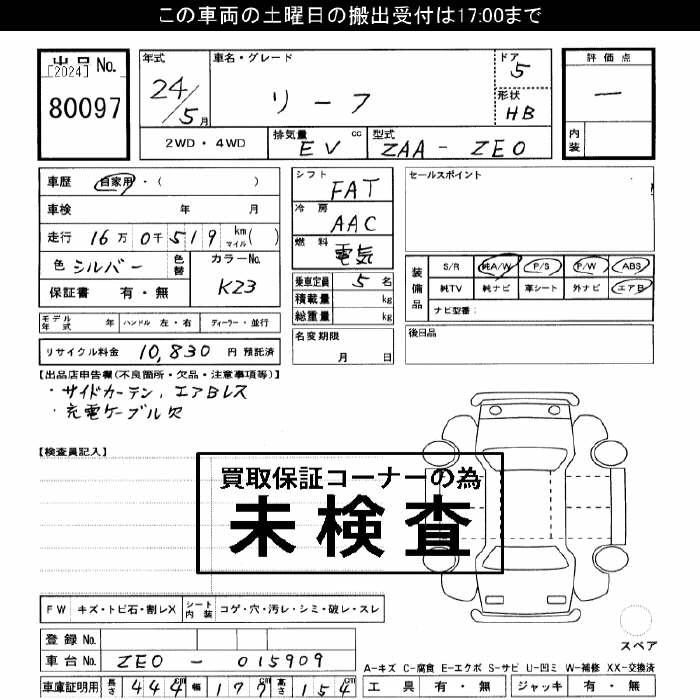 この車両の土曜日の搬出受付は17:00まで
出品 No.
[2024]
80097
年式
24/5月
車名・グレード
リーフ
ドア
5
形状
HB
評価点
ー
内装
2WD・4WD
排気量 cc
EV
型式
ZAA - ZE0
車歴 自家用・( )
車検 年 月
走行 16万0千519 km マイル( )
色 シルバー 色替
カラーNo.
K23
保証書 有・無
シフト
FAT
冷房
AAC
燃料
電気
乗車定員 5 名
積載量 kg
総重量 kg
名変期限
月 日
セールスポイント
装備品
S/R 純A/W P/S P/W ABS
純TV 純ナビ 革シート 外ナビ エアB
ナビ型番:
後日品
モデル年式 年 ハンドル 左・右 ディーラー・並行
リサイクル料金 10,830 円 預託済
【出品店申告欄(不良箇所・欠品・注意事項等)】
・サイドカーテン、エアBレス
・充電ケーブル欠
【検査員記入】
買取保証コーナーの為
未検査
FW キズ・トビ石・割レX シート内装 コゲ・穴・汚レ・シミ・破レ・スレ
登録 No.
車台 No. ZE0 - 015909
車庫証明用 長さ 444 cm 幅 177 cm 高さ 154 cm
スペア
A-キズ C-腐食 E-エクボ S-サビ U-凹ミ W-補修 XX-交換済
工具 有・無 ジャッキ 有・無